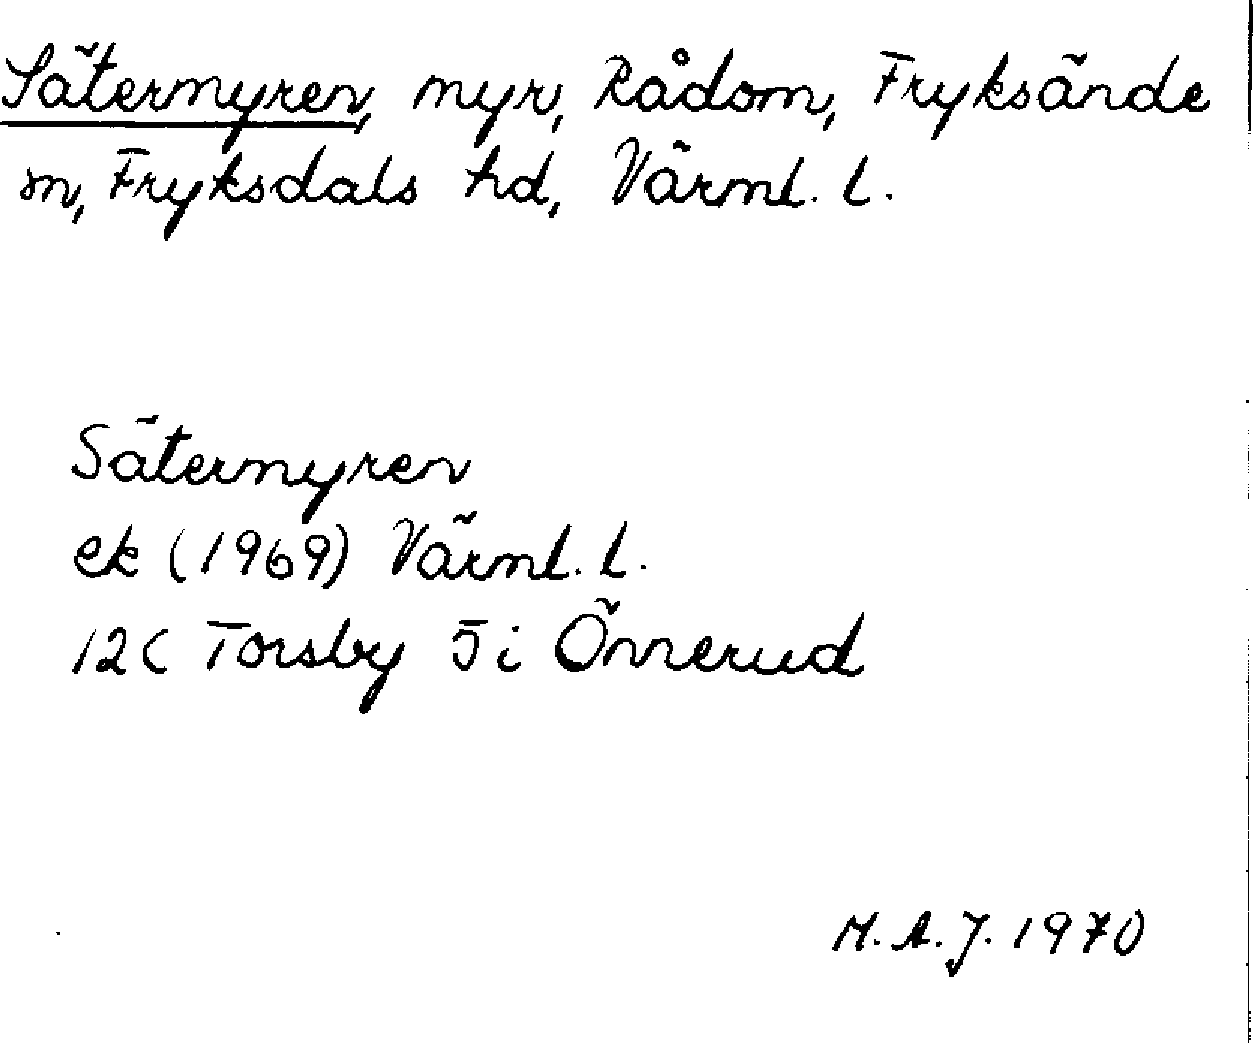 Sätermyren, myr, Rådom, Fryksände
sn, Fryksdals hd, Värml. l.
Sätermyren
ek (1969) Värml. l.
12C Torsby 5 i Önnerud
M. A. J. 1970